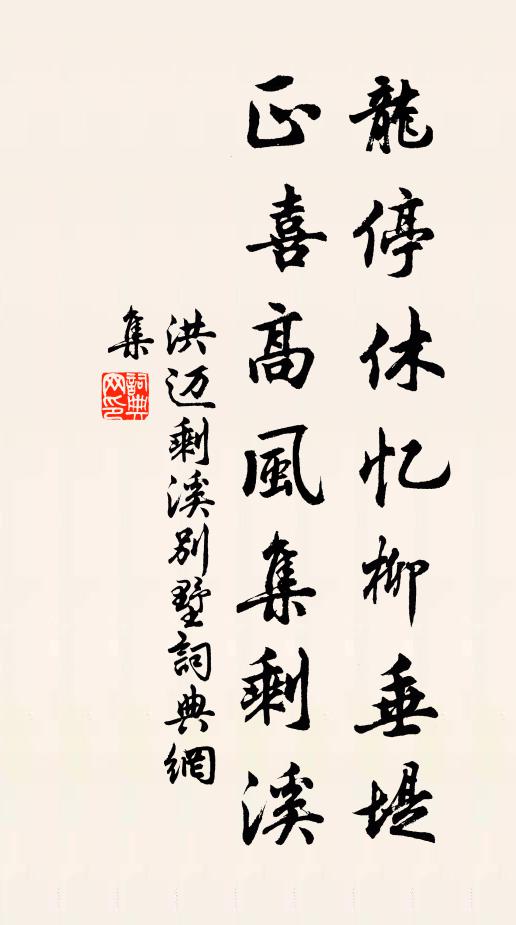 龍停休忆柳垂堤
正喜高風集剩溪
洪迈剩溪別墅詞典網
集
詞典网印